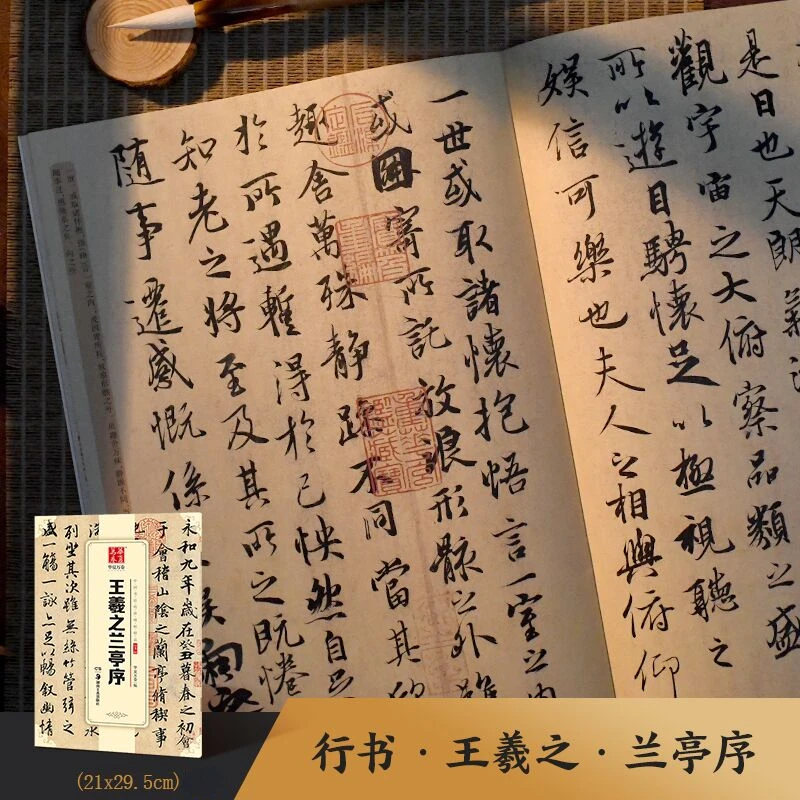 是日也天朗氣
觀宇宙之大俯察品類之盛
所以遊目騁懷足以極視聽之
娛信可樂也夫人之相與俯仰
一世或取諸懷抱悟言一室之内
或因寄所託放浪形骸之外雖
趣舍萬殊静躁不同當其欣
於所遇暫得於己怏然自足
知老之將至及其所之既惓
隨事遷感慨係
永和九年歲在癸丑暮春之初會
于會稽山陰之蘭亭脩禊事
列坐其次雖無絲竹管弦之
盛一觴一詠亦足以暢敘幽情
华夏万卷
王羲之兰亭序
(21x29.5cm)
行书·王羲之·兰亭序